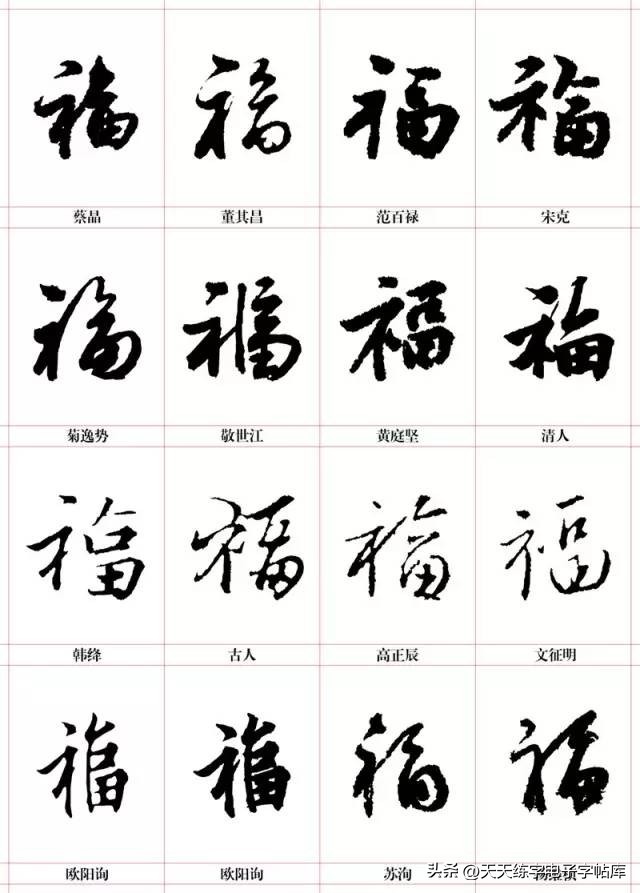 福 福 福 福
蔡晶 董其昌 范百禄 宋克
福 福 福 福
菊逸势 敬世江 黄庭坚 清人
福 福 福 福
韩绛 古人 高正辰 文征明
福 福 福 福
欧阳询 欧阳询 苏洵
头条 @天天练字电子字帖库